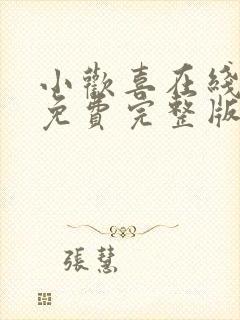 小歡喜在綫
免費完整版
張慧